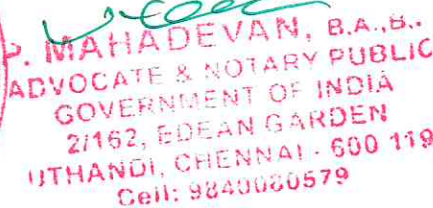 P. MAHADEVAN, B.A.,B..
ADVOCATE & NOTARY PUBLIC
GOVERNMENT OF INDIA
2/162, EDEAN GARDEN
UTHANDI, CHENNAI - 600 119
Cell: 9840080579